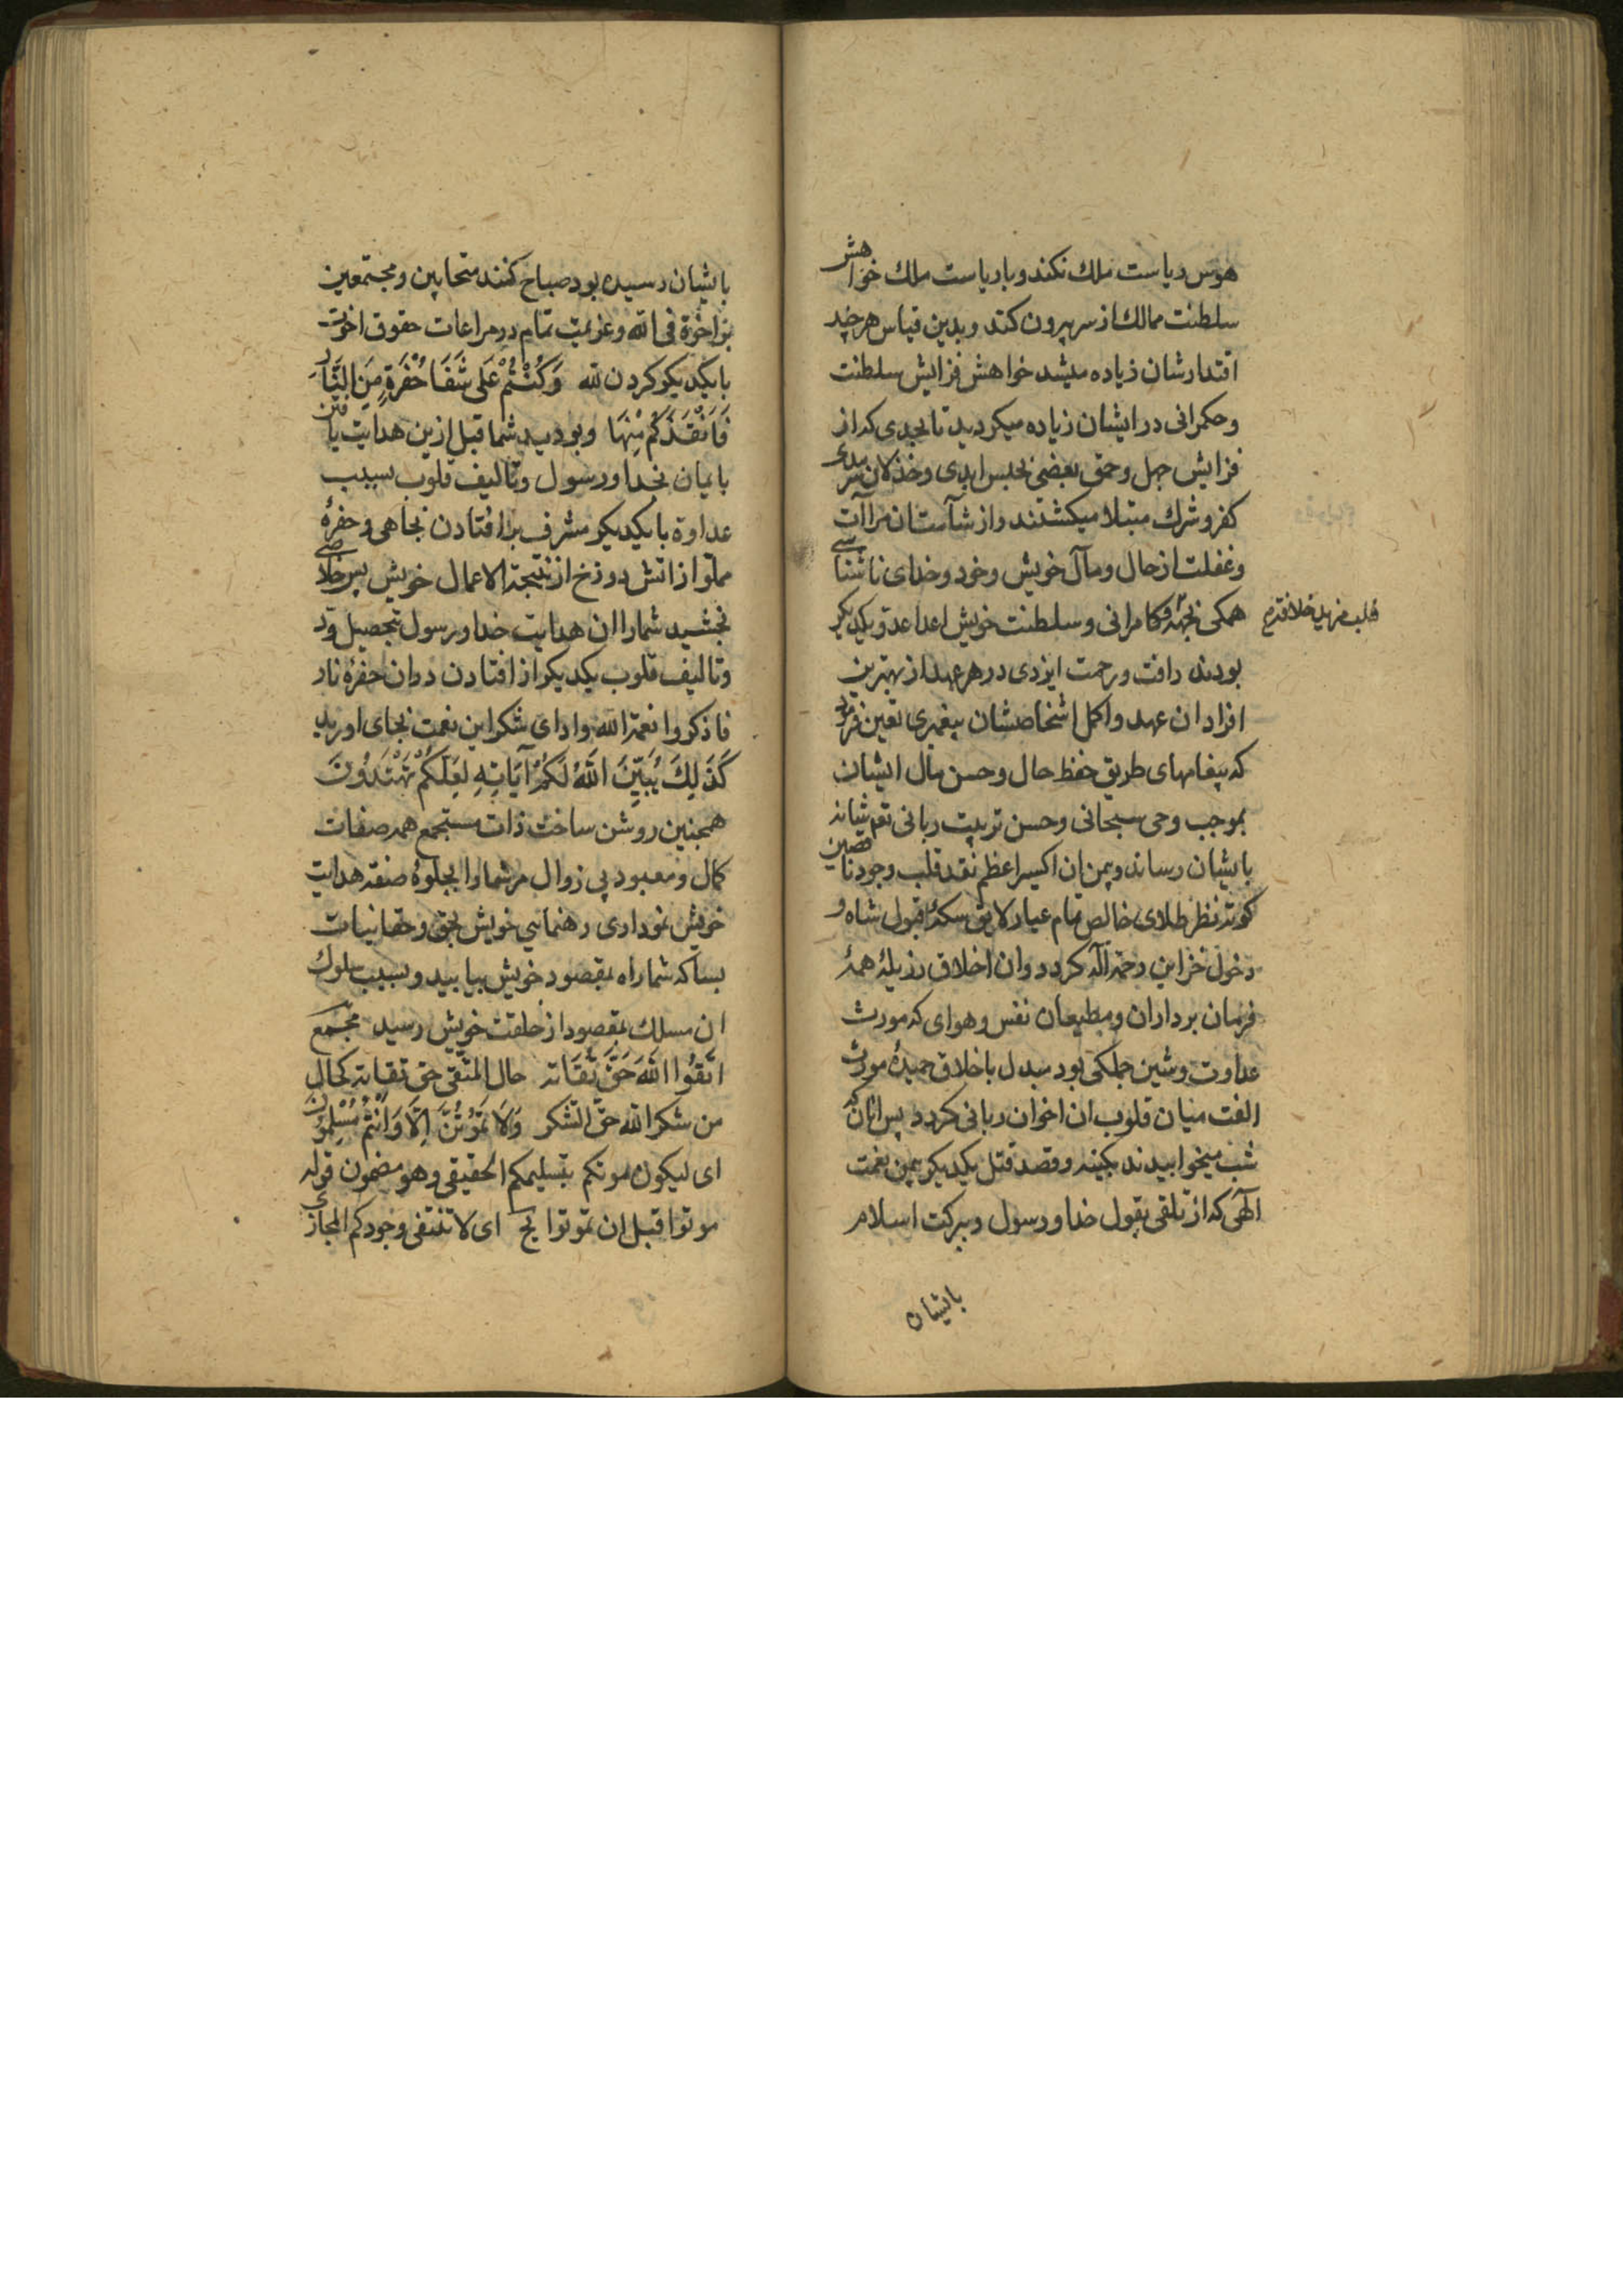 هوس ریاست ملك نكند و باریاست ملك خواهش
سلطنت ممالك از سر بیرون كند و بدین قیاس هر چند
اقتدارشان زیاده میشد خواهش فزایش سلطنت
و حكمرانی در ایشان زیاده میكردید تا بحدی كه از
فزایش جهل و حمق بعضی بحبس ابدی و خذلان سرمدی
كفر و شرك مبتلا میكشتند و از شآمت ان مراآت
و غفلت از حال و مآل خویش و خود و خدای ناشناسی
همكی بجهة كامرانی و سلطنت خویش اعدا عدو یكدیكر
بودند رافت و رحمت ایزدی در هر عهد از بهترین
افراد ان عهد و اكمل اشخاصشان پیغمبری تعین فرمود
كه پیغامهای طریق حفظ حال و حسن مآل ایشان
بموجب وحی سبحانی و حسن تربیت ربانی
بایشان رساند و بیمن ان اكسیر اعظم نقد قلب وجود ناقصین
كوته نظر طلای خالص تمام عیار لایق سكهٔ قبول شاه و
دخول خزاین رحمة اله كردد و ان اخلاق رذیلهٔ همهٔ
فرمان برداران و مطیعان نفس و هوای كه مورث
عداوت و شین جملكی بود مبدل باخلاق حمیدهٔ مورث
الفت میان قلوب ان اخوان ربانی كردد پس انان كه
شب میخوابیدند بكینه و قصد قتل یكدیكر بیمن نعمت
الهی كه از تلقی بقول خدا و رسول و ببركت اسلام
بایشان
بایشان رسیده بود صباح كنند متحابین و مجتمعین
بر اخوة فی الله و عزیمت تمام در مراعات حقوق اخوت
با یكدیكر كردن لله وَكُنْتُمْ عَلَى شَفَا حُفْرَةٍ مِنَ النَّارِ
فَاَنْقَذَكُمْ مِنْهَا و بودید شما قبل ازین هدایت یافتن
بایمان بخدا و رسول و تالیف قلوب بسبب
عداوة با یكدیكر مشرف بر افتادن بچاهی و حفرهٔ
مملو از اتش دوزخ از نتیجة الاعمال خویش پس خلاصی
بخشید شما را ان هدایت خدا و رسول بتحصیل ود
و تالیف قلوب یكدیكر از افتادن در ان حفرهٔ نار
فاذكروا نعمة الله و ادای شكر این نعمت بجای اورید
كَذَلِكَ يُبَيِّنَ اللَّهُ لَكُمْ آيَاتِهِ لَعَلَّكُمْ تَهْتَدُونَ
همچنین روشن ساخت ذات مستجمع همه صفات
كمال و معبود بی زوال مر شما را بجلوهٔ صفة هدایت
خویش نموداری رهنمایی خویش بحق و حقانیات
بسا كه شما راه بمقصود خویش بیابید و بسبب سلوك
ان مسلك بمقصود از خلقت خویش رسید
اتَّقُوا اللَّهَ حَقَّ تُقَاتِهِ حال المتقی حق تقاته كحال
من شكر الله حق الشكر وَلَا تَمُوتُنَّ اِلَّا وَاَنْتُمْ مُسْلِمُونَ
ای لیكون موتكم بتسلیمكم الحقیقی و هو مضمون قوله
موتوا قبل ان تموتوا ای لا تنتفی وجودكم المجازی